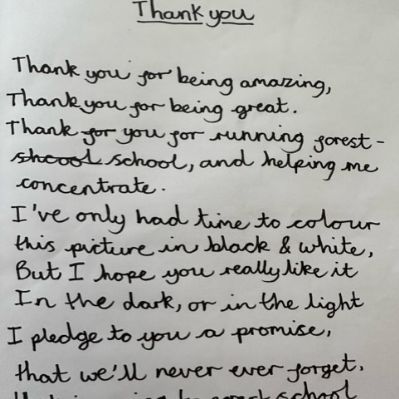 Thank you
Thank you for being amazing,
Thank you for being great.
Thank for you for running forest-
shcool school, and helping me
concentrate.
I've only had time to colour
this picture in black & white,
But I hope you really like it
In the dark, or in the light
I pledge to you a promise,
that we'll never ever forget.
school